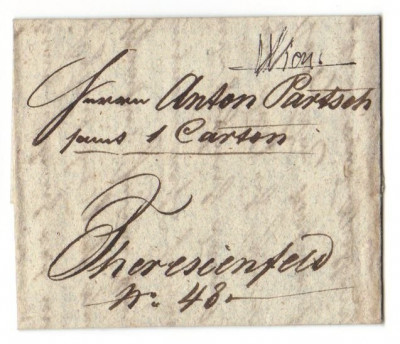 Wien.
Herrn Anton Partsch
samt 1 Carton
Theresienfeld
No. 48.